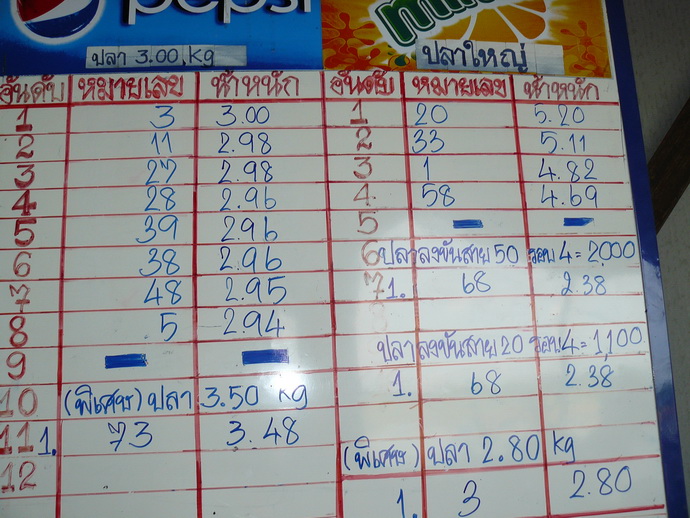 pepsi
ปลา 3.00 kg
อันดับ หมายเลข น้ำหนัก
1 3 3.00
2 11 2.98
3 27 2.98
4 28 2.96
5 39 2.96
6 38 2.96
7 48 2.95
8 5 2.94
9 – –
10 (พิเศษ) ปลา 3.50 kg
11 1. 73 3.48
12
ปลาใหญ่
อันดับ หมายเลข น้ำหนัก
1 20 5.20
2 33 5.11
3 1 4.82
4 58 4.69
5 – –
6 ปลาลงขันสาย 50 รอบ 4 = 2,000
7 1. 68 2.38
ปลาลงขันสาย 20 รอบ 4 = 1,100
1. 68 2.38
(พิเศษ) ปลา 2.80 kg
1. 3 2.80